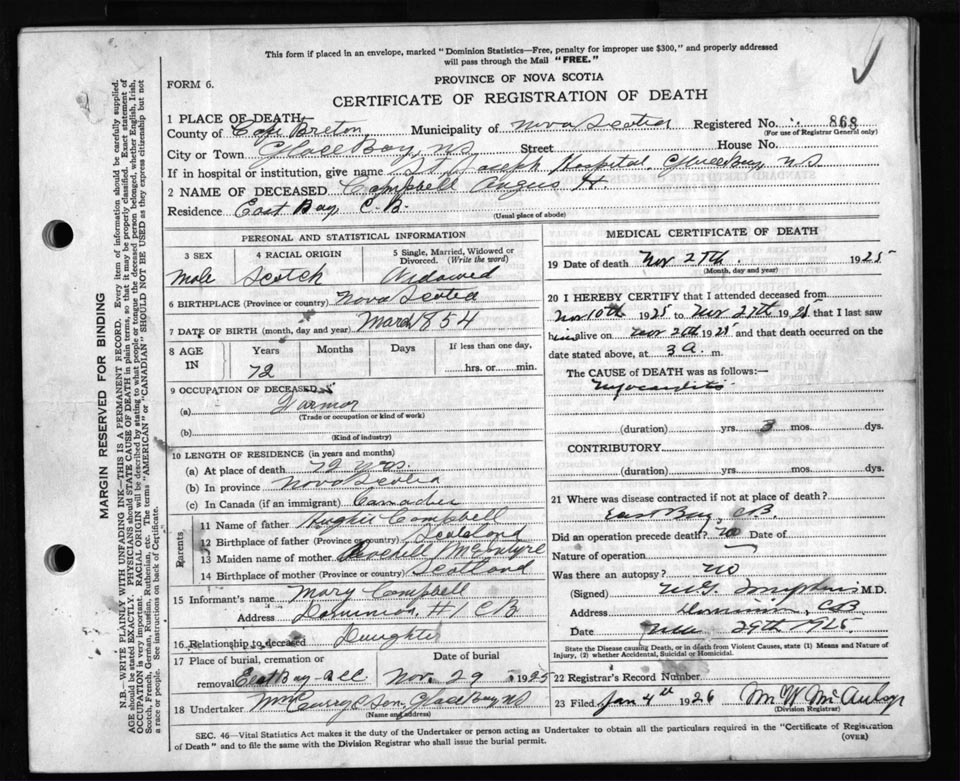 This form if placed in an envelope, marked "Dominion Statistics—Free, penalty for improper use $300," and properly addressed
will pass through the Mail "FREE."
FORM 6.
PROVINCE OF NOVA SCOTIA
CERTIFICATE OF REGISTRATION OF DEATH
1 PLACE OF DEATH
County of Cape Breton, Municipality of Nova Scotia Registered No. 868
(For use of Registrar General only)
City or Town Glace Bay, NS Street House No.
If in hospital or institution, give name St Joseph Hospital, Glace Bay NS
2 NAME OF DECEASED Campbell Angus H.
Residence East Bay C.B.
(Usual place of abode)
PERSONAL AND STATISTICAL INFORMATION
3 SEX 4 RACIAL ORIGIN 5 Single, Married, Widowed or Divorced. (Write the word)
Male Scotch Widowed
6 BIRTHPLACE (Province or country) Nova Scotia
7 DATE OF BIRTH (month, day and year) March 1854
8 AGE IN Years Months Days If less than one day,
72 hrs. or min.
9 OCCUPATION OF DECEASED
(a) Farmer
(Trade or occupation or kind of work)
(b)
(Kind of industry)
10 LENGTH OF RESIDENCE (in years and months)
(a) At place of death 72 yrs.
(b) In province Nova Scotia
(c) In Canada (if an immigrant)
Parents
11 Name of father Campbell
12 Birthplace of father (Province or country) Scotland
13 Maiden name of mother McIntyre
14 Birthplace of mother (Province or country) Scotland
15 Informant's name Mary Campbell
Address Dominion, #1 CB
16 Relationship to deceased Daughter
17 Place of burial, cremation or removal East Bay Date of burial Nov 29 1925
18 Undertaker Curry & Son. Glace Bay NS
(Name and address)
MEDICAL CERTIFICATE OF DEATH
19 Date of death Nov 27th. 1925
(Month, day and year)
20 I HEREBY CERTIFY that I attended deceased from
Nov 10th 1925 to Nov 27th 1925 that I last saw
him alive on Nov 26th 1925 and that death occurred on the
date stated above, at 3 a. m.
The CAUSE of DEATH was as follows:—
Myocarditis
(duration) yrs. 3 mos. dys.
CONTRIBUTORY.
(duration) yrs. mos. dys.
21 Where was disease contracted if not at place of death?
East Bay, CB.
Did an operation precede death? No Date of
Nature of operation
Was there an autopsy? No
(Signed) M.D.
Address Dominion, CB
Date Nov 29th 1925.
State the Disease causing Death, or in death from Violent Causes, state (1) Means and Nature of
Injury, (2) whether Accidental, Suicidal or Homicidal.
22 Registrar's Record Number
23 Filed Jan 4th 1926
(Division Registrar)
SEC. 46—Vital Statistics Act makes it the duty of the Undertaker or person acting as Undertaker to obtain all the particulars required in the "Certificate of Registration
of Death" and to file the same with the Division Registrar who shall issue the burial permit.
(OVER)
MARGIN RESERVED FOR BINDING
N.B.—WRITE PLAINLY WITH UNFADING INK—THIS IS A PERMANENT RECORD. Every item of information should be carefully supplied.
AGE should be stated EXACTLY. PHYSICIANS should STATE CAUSE OF DEATH in plain terms, so that it may be properly classified. Exact statement of
OCCUPATION is very important. RACIAL ORIGIN will be described by stating to what people or tongue the deceased person belonged, whether English, Irish,
Scotch, French, German, Russian, Ruthenian, etc. The terms "AMERICAN" or "CANADIAN" SHOULD NOT BE USED as they express citizenship but not
a race or people. See instructions on back of Certificate.